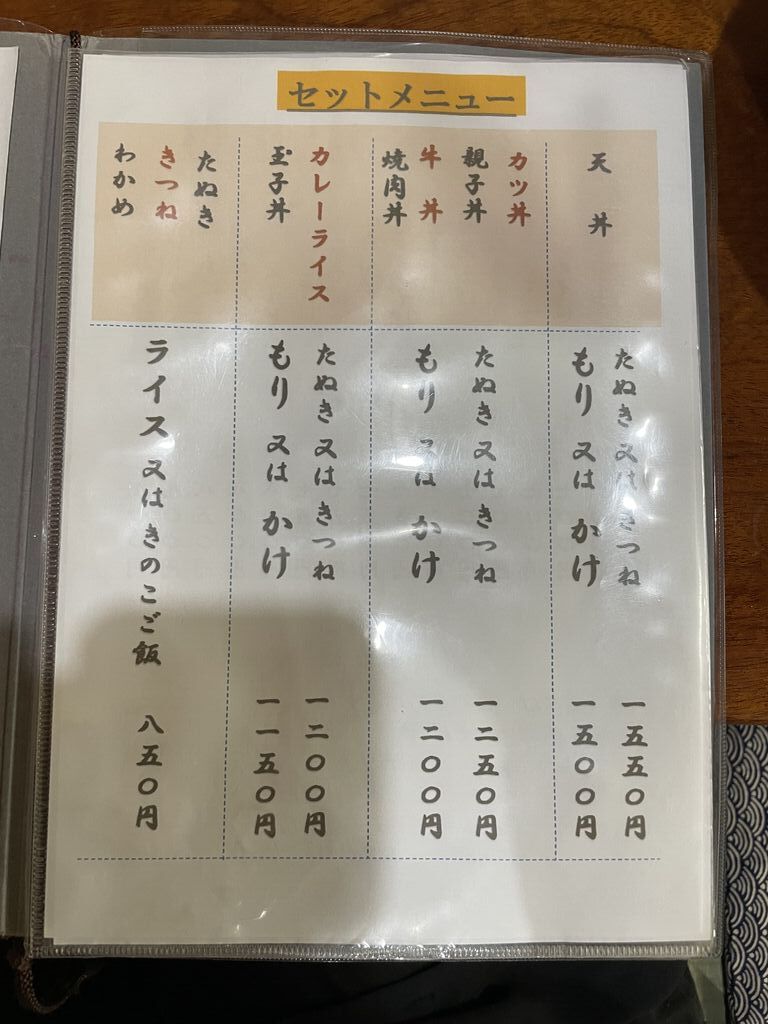 セットメニュー
天丼
たぬき 又は きつね 一五五〇円
もり 又は かけ 一五〇〇円
カツ丼
親子丼
牛丼
焼肉丼
たぬき 又は きつね 一二五〇円
もり 又は かけ 一二〇〇円
カレーライス
玉子丼
たぬき 又は きつね 一二〇〇円
もり 又は かけ 一一五〇円
たぬき
きつね
わかめ
ライス 又は きのこご飯 八五〇円